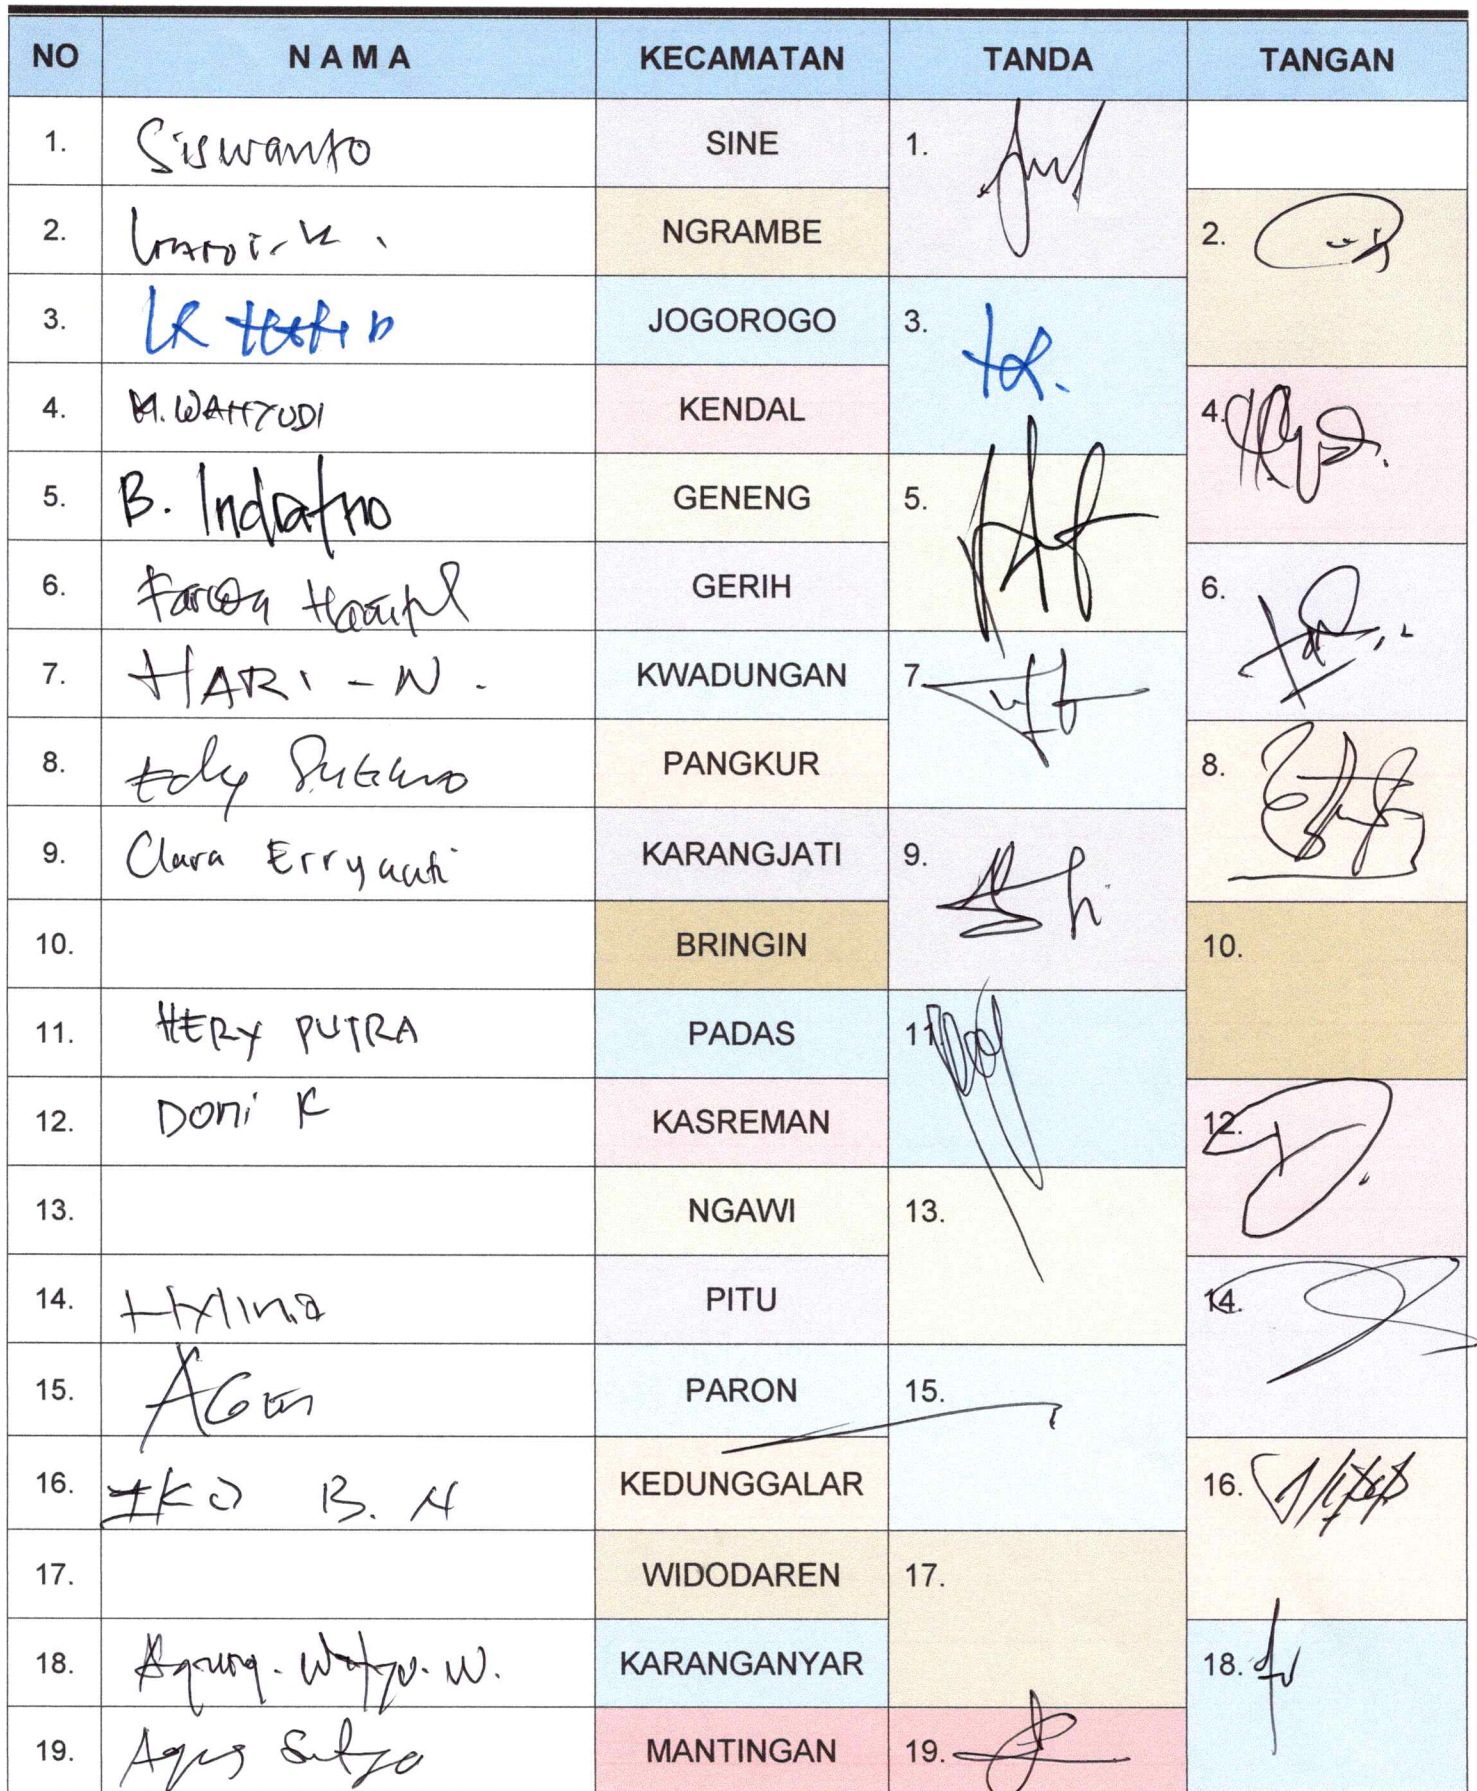 NO NAMA KECAMATAN TANDA TANGAN
1. Siswanto SINE 1.
2. NGRAMBE 2.
3. JOGOROGO 3.
4. M. WAHYUDI KENDAL 4.
5. B. Indratno GENENG 5.
6. GERIH 6.
7. HARI - N. KWADUNGAN 7.
8. Edy PANGKUR 8.
9. Clara Erryanti KARANGJATI 9.
10. BRINGIN 10.
11. HERY PUTRA PADAS 11.
12. Doni K KASREMAN 12.
13. NGAWI 13.
14. PITU 14.
15. PARON 15.
16. EKO B. N KEDUNGGALAR 16.
17. WIDODAREN 17.
18. Agung. W. KARANGANYAR 18.
19. Agus MANTINGAN 19.